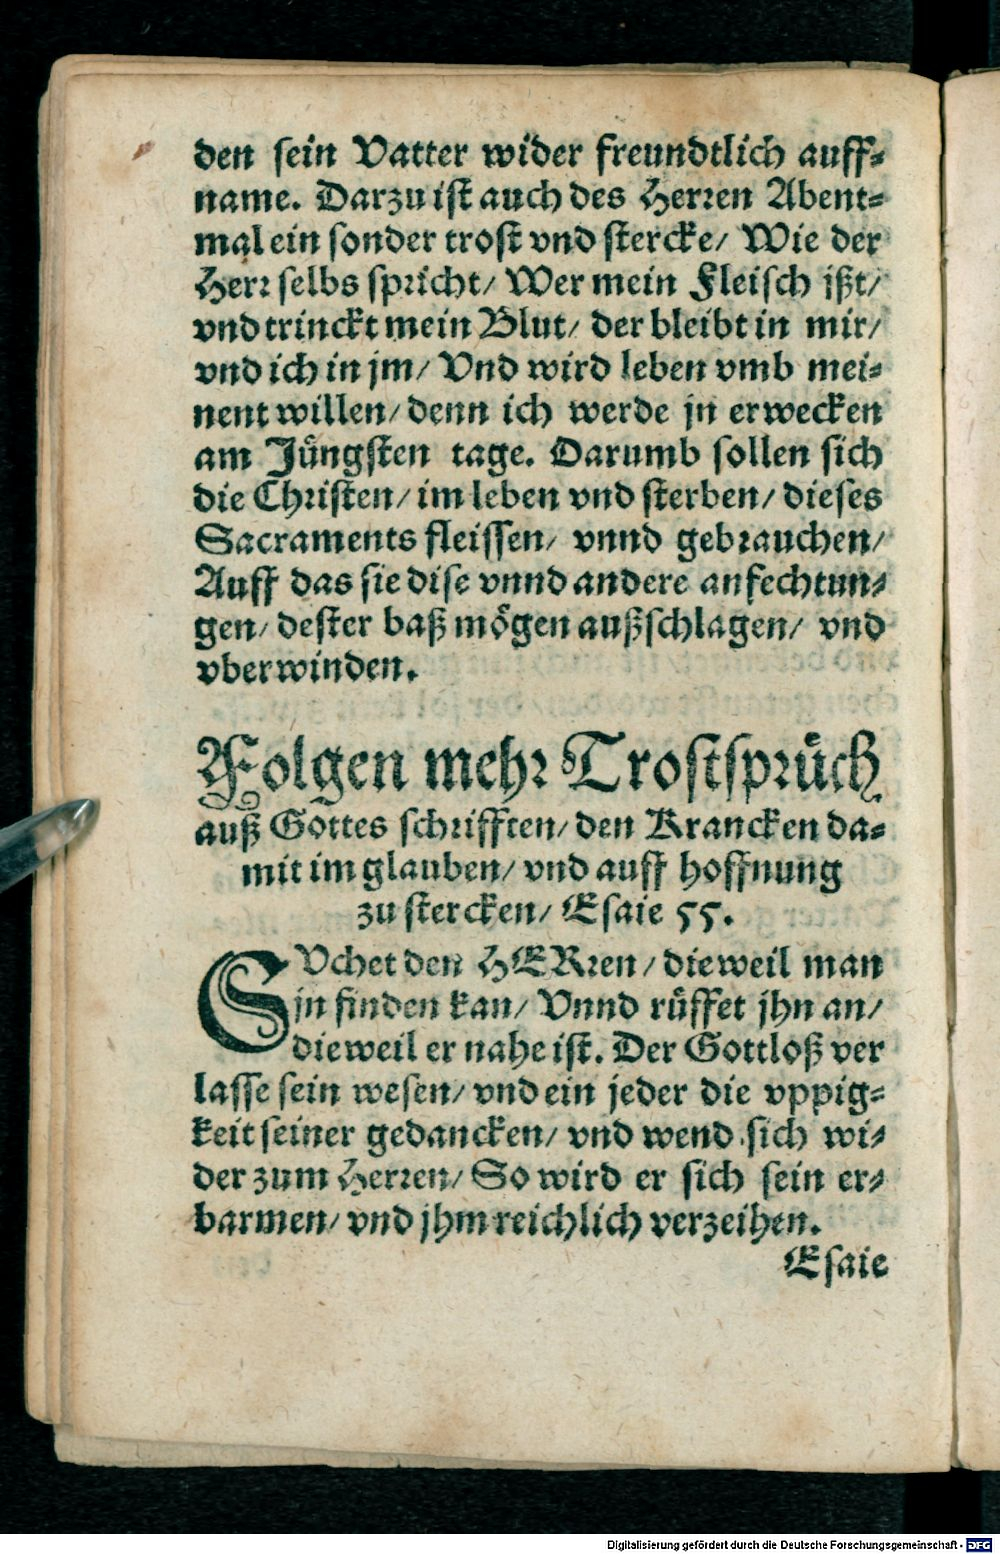 den sein Vatter wider freundtlich auff-
name. Darzu ist auch des Herren Abent-
mal ein sonder trost vnd stercke/ Wie der
Herr selbs spricht/ Wer mein Fleisch ißt/
vnd trinckt mein Blut/ der bleibt in mir/
vnd ich in jm/ Vnd wird leben vmb mei-
nent willen/ denn ich werde jn erwecken
am Jüngsten tage. Darumb sollen sich
die Christen/ im leben vnd sterben/ dieses
Sacraments fleissen/ vnnd gebrauchen/
Auff das sie dise vnnd andere anfechtun-
gen/ dester baß mögen außschlagen/ vnd
vberwinden.
Folgen mehr Trostsprüch
auß Gottes schrifften/ den Krancken da-
mit im glauben/ vnd auff hoffnung
zu stercken/ Esaie 55.
SVchet den HERren/ dieweil man
jn finden kan/ Vnnd rüffet jhn an/
dieweil er nahe ist. Der Gottloß ver
lasse sein wesen/ vnd ein jeder die vppig-
keit seiner gedancken/ vnd wend sich wi-
der zum Herren/ So wird er sich sein er-
barmen/ vnd jhm reichlich verzeihen.
Esaie
Digitalisierung gefördert durch die Deutsche Forschungsgemeinschaft - DFG